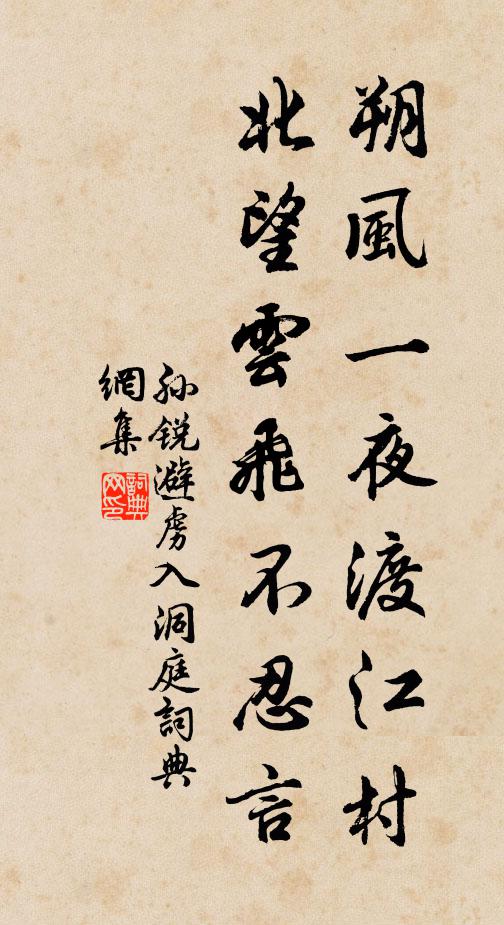 朔風一夜渡江村
北望雲飛不忍言
孙锐避虏入洞庭詞典
網集
詞典網印